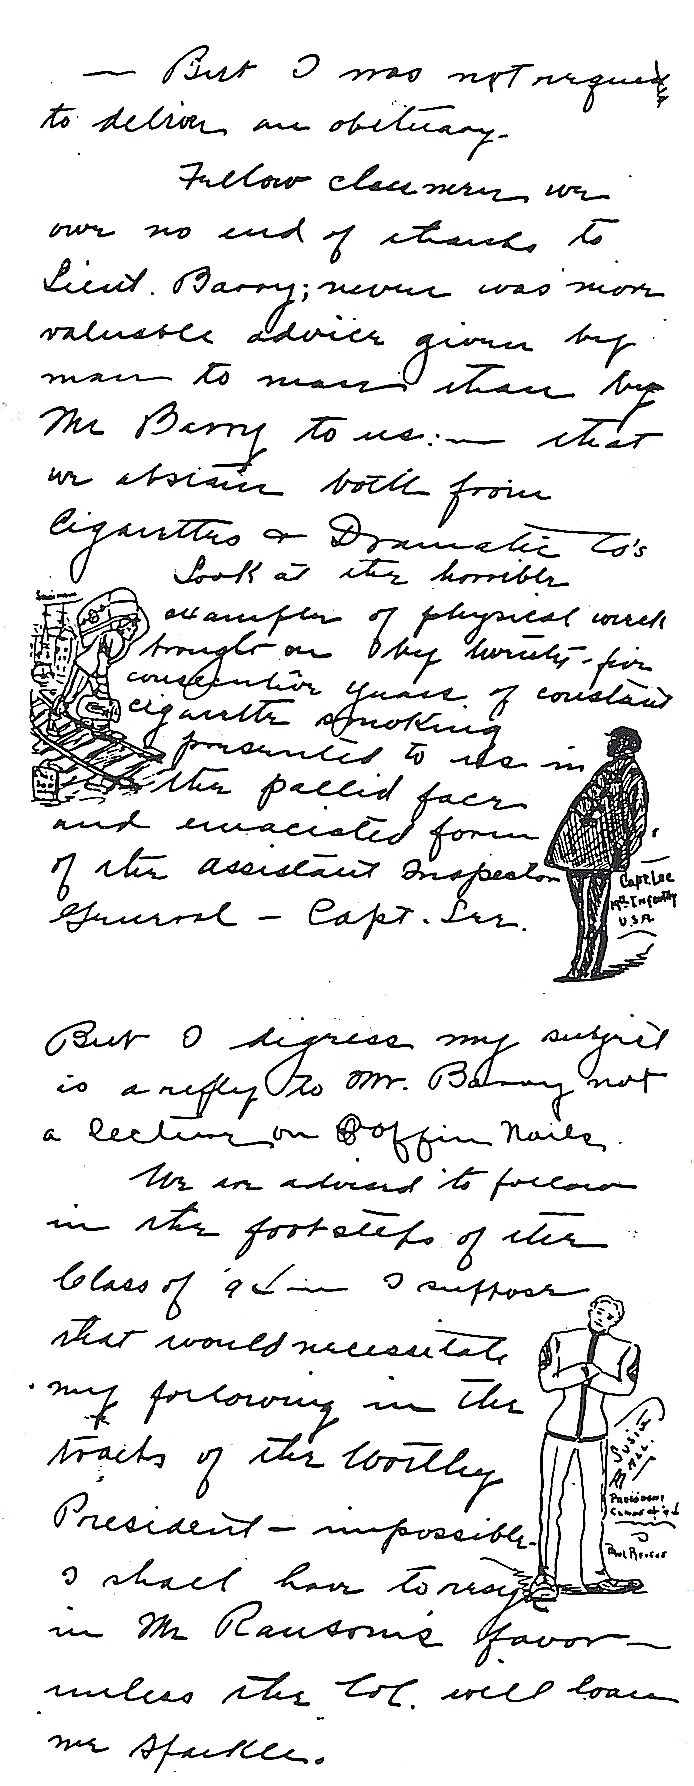 — But I was not requested
to deliver an obituary.
Fellow classmen, we
owe no end of thanks to
Lieut. Barry; never was more
valuable advice given by
man to man than by
Mr Barry to us: — that
we abstain both from
Cigarettes & Dramatic Co's
Look at the horrible
examples of physical wreck
brought on by twenty-five
consecutive years of constant
cigarette smoking
presented to us in
the pallid face
and emaciated form
of the Assistant Inspector
General — Capt. Lee.
Capt. Lee
19th Infantry
U S A
But I digress my subject
is a reply to Mr. Barry not
a lecture on Coffin Nails.
We are advised to follow
in the footsteps of the
Class of '92 — I suppose
that would necessitate
my following in the
tracks of the Worthy
President — impossible.
I shall have to resign
in Mr Ransom's favor —
unless the Col. will loan
me Sparkle.
Susie
Ball.
President
Class of '92